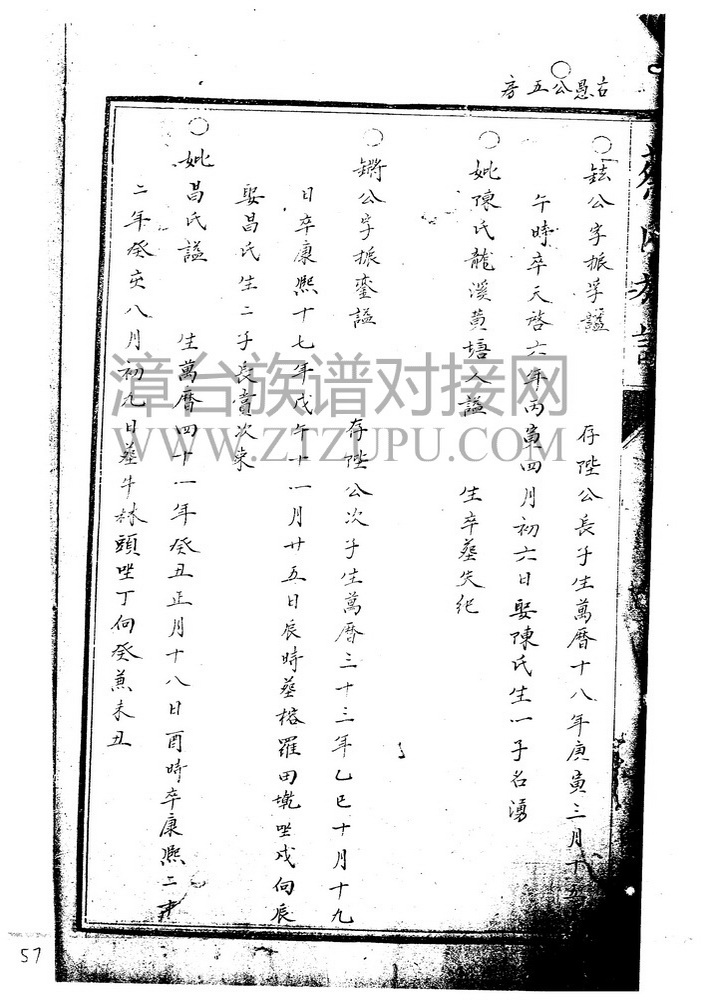 古愚公五房
○鉉公字振孚諡 存陛公長子生萬曆十八年庚寅三月十
午時卒天啓六年丙寅四月初六日娶陳氏生一子名湧
○妣陳氏龍溪黄塘人諡 生卒墓失紀
○鏘公字振鑾諡 存陛公次子生萬曆三十三年乙巳十月十九
日卒康熙十七年戊午十一月廿五日辰時墓榕羅田墘坐戌向辰
娶昌氏生二子長賞次東
○妣昌氏諡 生萬曆四十一年癸丑正月十八日酉時卒康熙二十
二年癸亥八月初九日墓牛林頭坐丁向癸兼未丑
漳台族谱对接网
WWW.ZTZUPU.COM
57